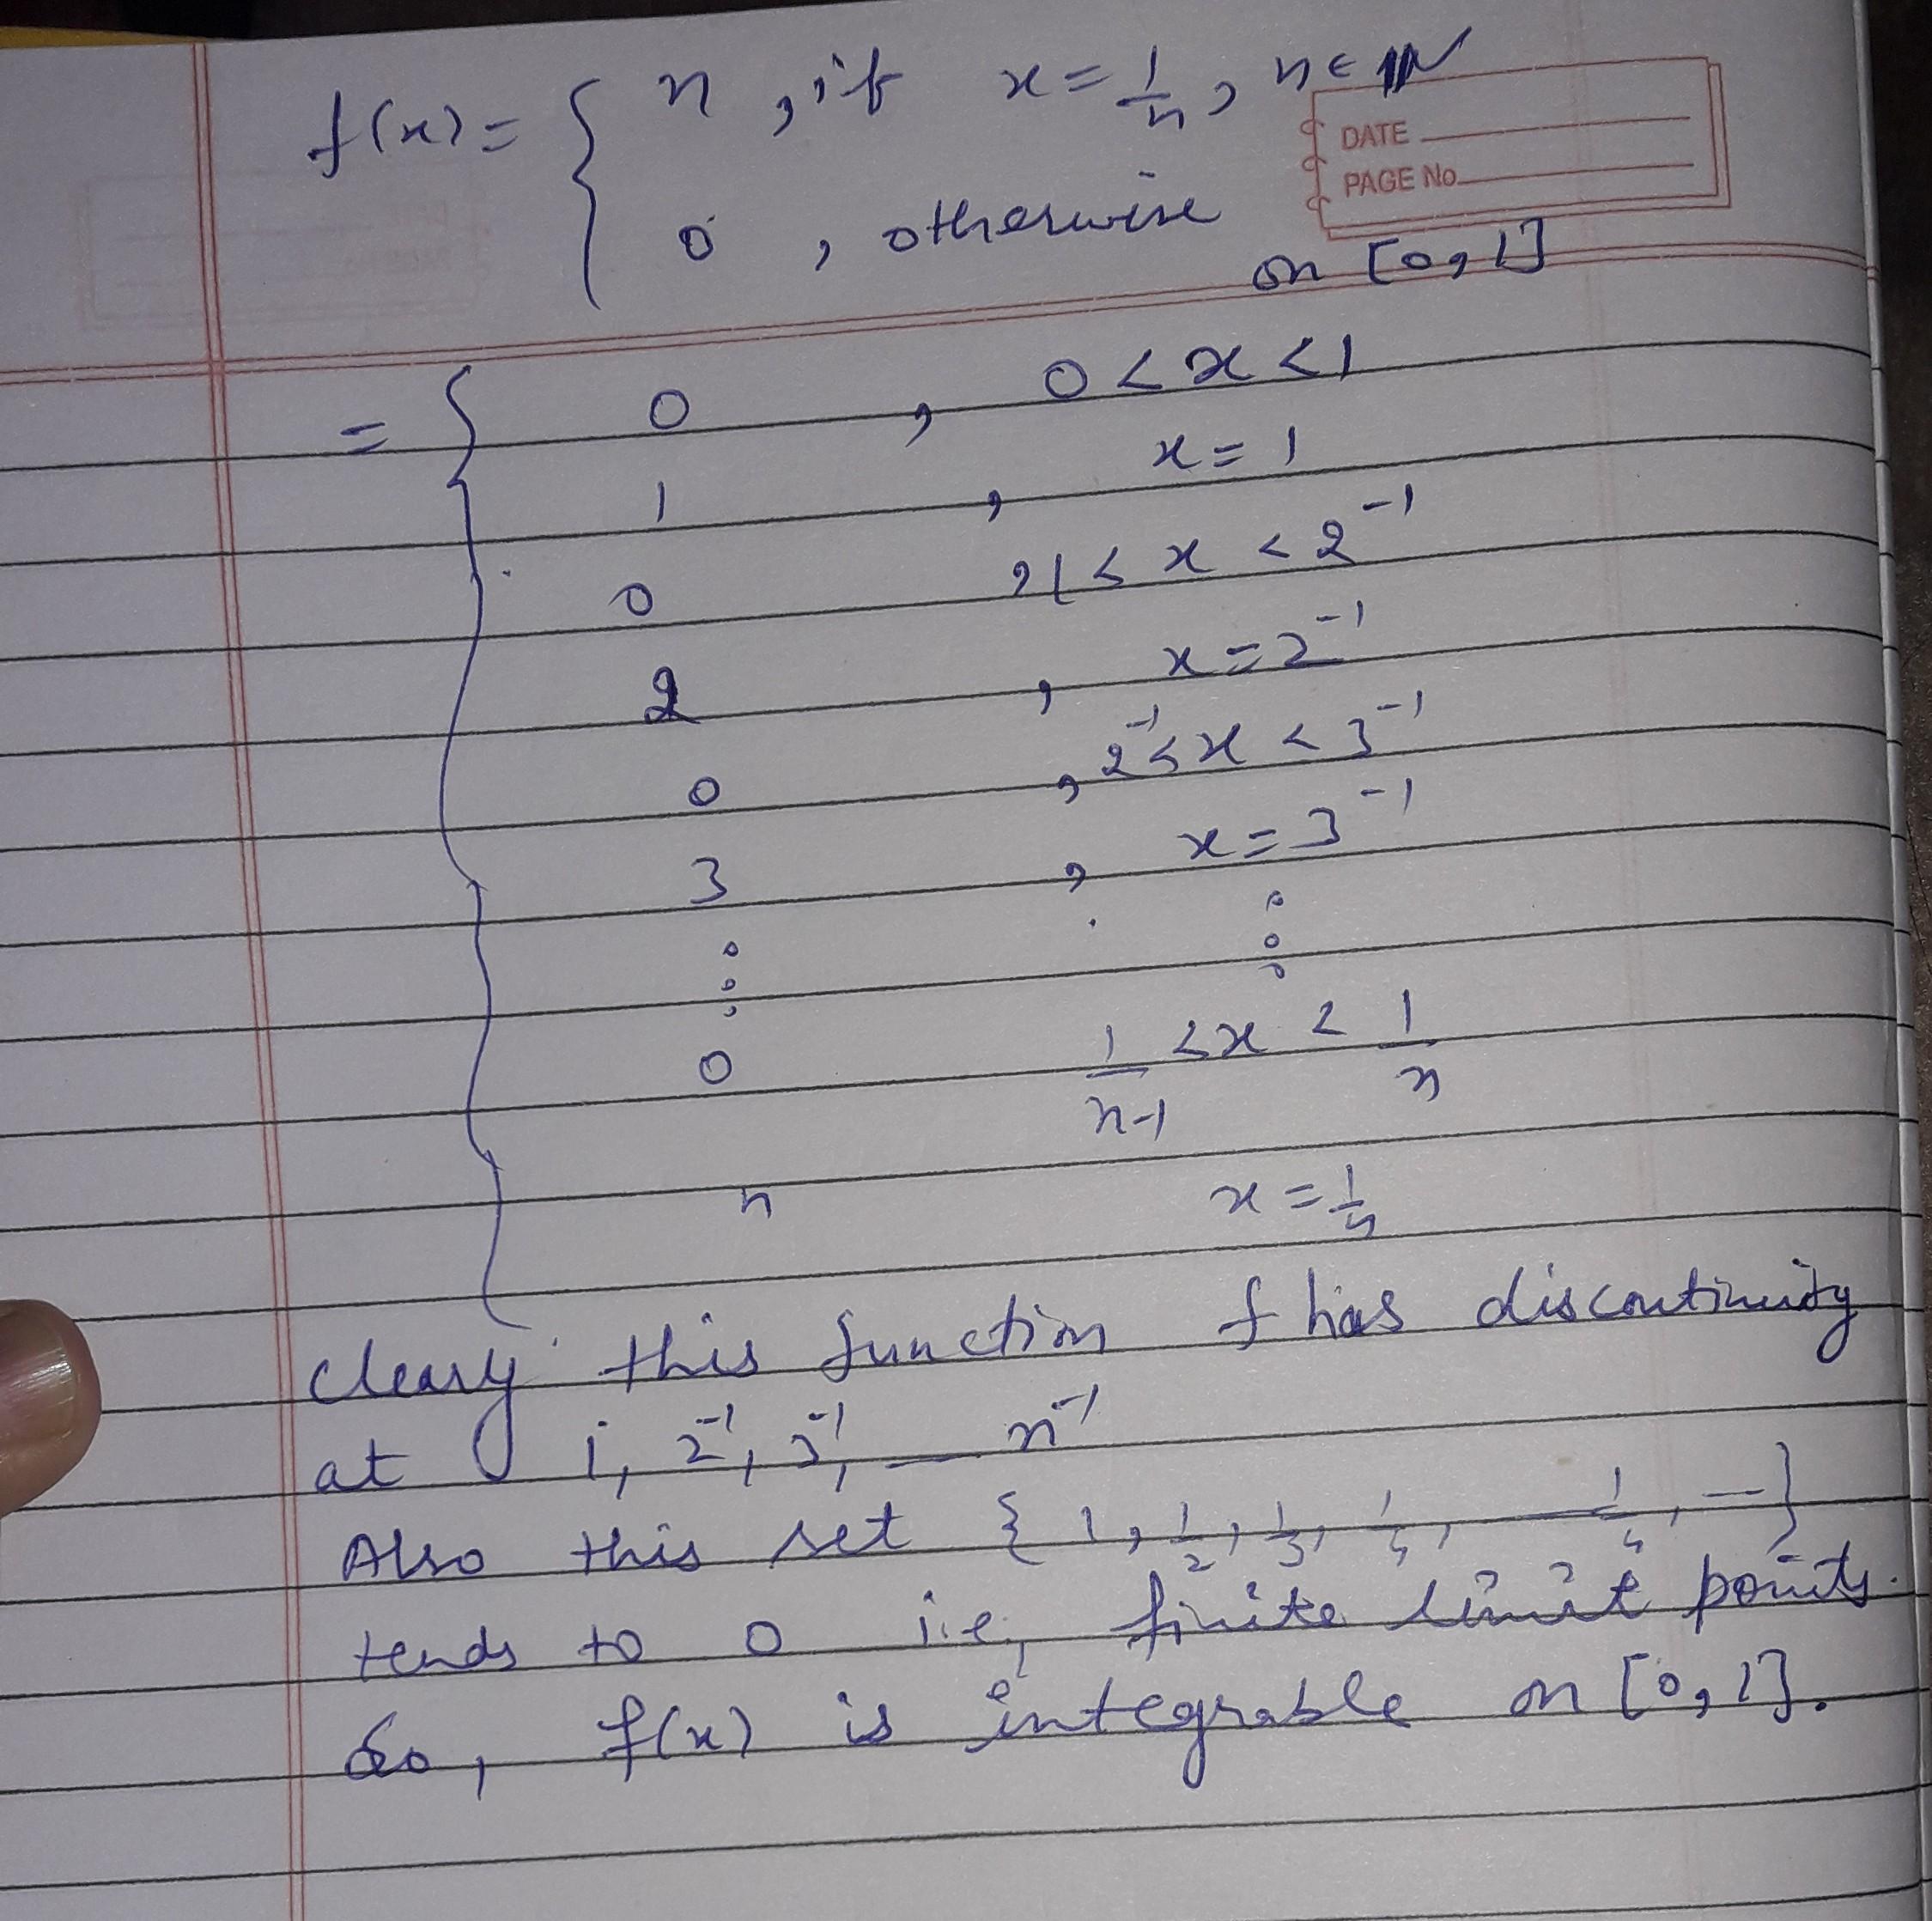 f(x) = { n , if x = 1/n , n ∈ ℕ
DATE
PAGE No.
0 , otherwise
on [0, 1]
= { 0 , 0 < x < 1
1 , x = 1
0 , 1 < x < 2⁻¹
2 , x = 2⁻¹
0 , 2⁻¹ < x < 3⁻¹
3 , x = 3⁻¹
⋮ ⋮
0 1/n-1 < x < 1/n
n x = 1/n
clearly this function f has discontinuity
at 1, 2⁻¹, 3⁻¹, — n⁻¹
Also this set { 1, 1/2, 1/3, 1/4, — 1/n, — }
tends to 0 i.e, finite limit points.
So, f(x) is integrable on [0, 1].